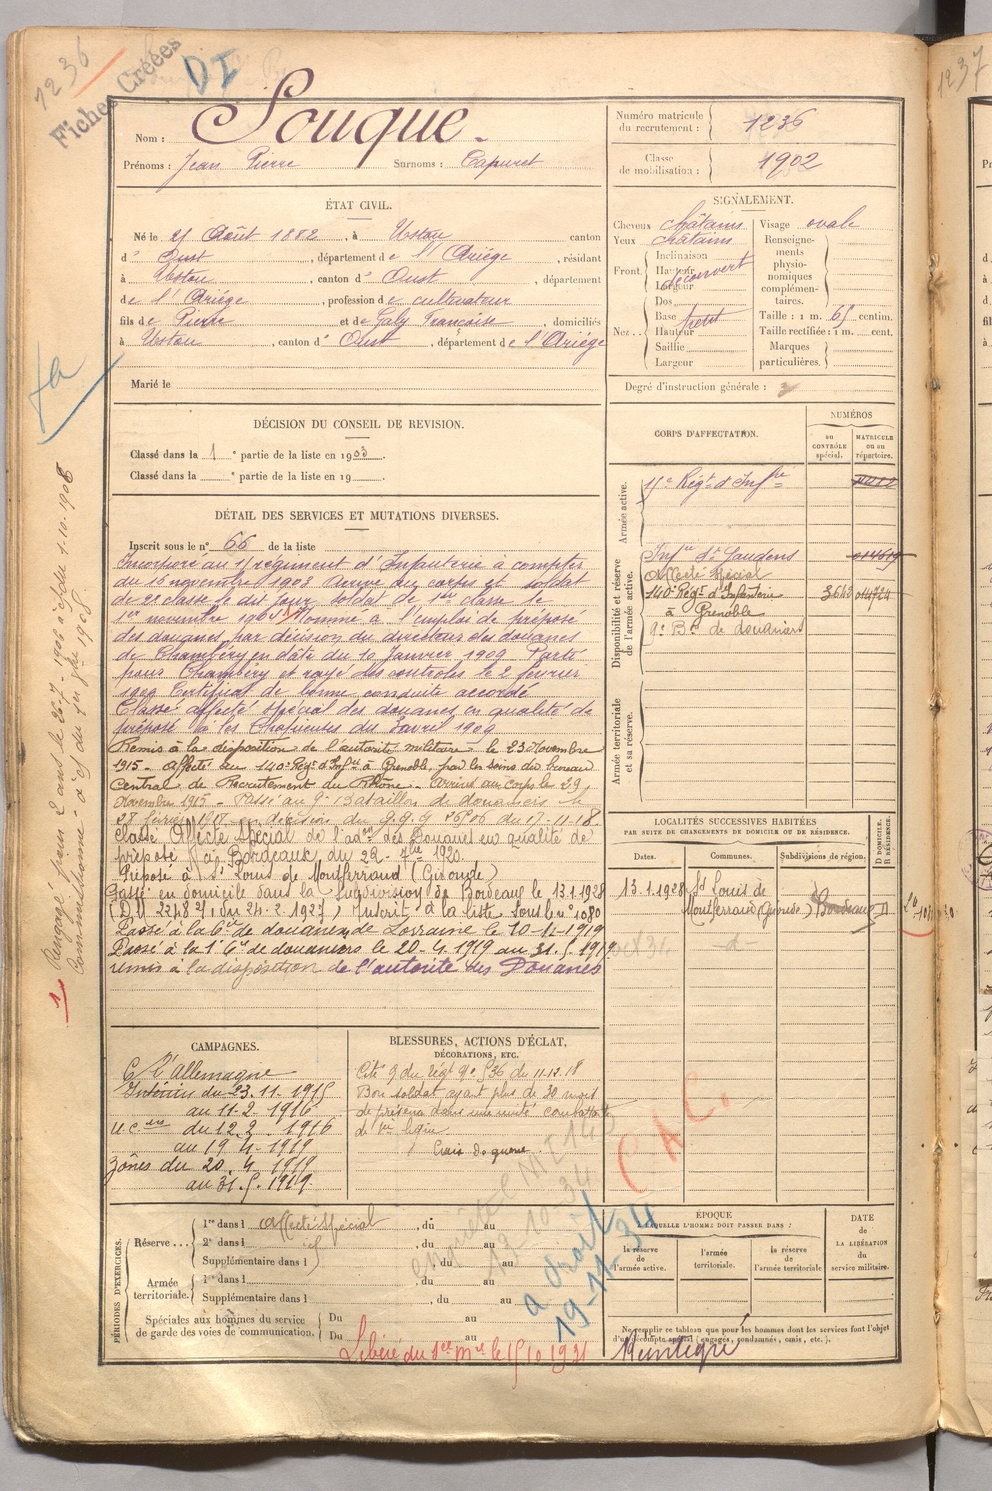 1236
Fiches Créées
DI
Nom : Souque.
Prénoms : Jean Pierre Surnoms : Capuret
Numéro matricule du recrutement : 1236
Classe de mobilisation : 1902
ÉTAT CIVIL.
Né le 21 Août 1882, à Ustou canton
d' Oust, département de l'Ariége, résidant
à Ustou, canton d' Oust, département
de l'Ariége, profession de cultivateur
fils de Pierre et de Galy Françoise, domiciliés
à Ustou, canton d' Oust, département de l'Ariége
Marié le
SIGNALEMENT.
Cheveux châtains Visage ovale
Yeux châtains Renseigne-
ments
physio-
nomiques
complémen-
taires.
Front. Inclinaison
Hauteur découvert
Largeur
Nez.. Dos
Base petit
Hauteur
Saillie
Largeur
Taille : 1 m. 65 centim.
Taille rectifiée : 1 m. cent.
Marques
particulières.
Degré d'instruction générale :
DÉCISION DU CONSEIL DE REVISION.
Classé dans la 1 e partie de la liste en 1903.
Classé dans la e partie de la liste en 19
CORPS D'AFFECTATION.
NUMÉROS
au CONTRÔLE spécial.
MATRICULE ou au répertoire.
Armée active.
Régt d'Infrie
Disponibilité et réserve de l'armée active.
Infie St Gaudens 014619
Affecté Spécial
140e Régt d'Infanterie 014724
à Grenoble
9e Bon de douaniers
Armée territoriale et sa réserve.
DÉTAIL DES SERVICES ET MUTATIONS DIVERSES.
Inscrit sous le n° 66 de la liste
Incorporé au régiment d'Infanterie à compter
du 16 novembre 1903 Arrivé au corps et soldat
de 2e classe le dit jour, soldat de 1ere classe le
1er novembre 1905 Nommé à l'emploi de préposé
des douanes, par décision du directeur des douanes
de Chambéry en date du 10 Janvier 1909 Parti
pour Chambéry et rayé des contrôles le 2 février
1909 Certificat de bonne conduite accordé
Classé affecté spécial des douanes en qualité de
préposé à les Chapieuses du avril 1909
Remis à la disposition de l'autorité militaire le 23 Novembre
1915 - Affecté au 140e Régt d'Infie à Grenoble, par les soins du bureau
Central de Recrutement du Rhône - Arrivé au corps le 29
Novembre 1915 - Passé au 9e Bataillon de douaniers le
28 février décision du G.Q.G du 17-11-18
Classé Affecté Spécial de l'adon des Douanes en qualité de
préposé à Bordeaux du 22 - 7bre 1920.
Préposé à St Louis de Montferrand (Gironde)
Passé en domicile dans la Subdivision de Bordeaux le 13.1.1928
(D.M. 2248 du 24-2-1927) Inscrit à la liste sous le n° 1080
Passé à la 6e Cie de douaniers de Lorraine le 10-11-1919
Passé à la 1e Cie de douaniers le 20-4-1919 au 31.5.1919
remis à la disposition de l'autorité des Douanes
1 Rengagé pour 2 ans le 26-7-1906 à 1-10-1906
Commissionné
LOCALITÉS SUCCESSIVES HABITÉES
PAR SUITE DE CHANGEMENTS DE DOMICILE OU DE RÉSIDENCE.
Dates. Communes. Subdivisions de région. D DOMICILE. R RÉSIDENCE.
13.1.1928 St Louis de
Montferrand (Gironde) Bordeaux D
CAMPAGNES.
C/ l'Allemagne
Intérieur du 23.11.1915
au 11-2-1916
U.C. du 12.2 1916
au 19-4-1919
Zônes du 20.4.1919
au 31.5.1919.
BLESSURES, ACTIONS D'ÉCLAT, DÉCORATIONS, ETC.
Cité O du Régt n° 536 du 11.12.18
Bon soldat ayant plus de 30 mois
de présence dans une unité combattante
de 1ere ligne.
Croix de guerre.
C.A.C.
19-10-34
a droit
19-11-34
PÉRIODES D'EXERCICES.
Réserve... 1re dans l Affecté Spécial, du au
2e dans l , du au
Supplémentaire dans l , du au
Armée territoriale. 1re dans l , du au
Supplémentaire dans l , du au
Spéciales aux hommes du service de garde des voies de communication. Du au
Du au
Libéré du sce mre le 15 10 1931
ÉPOQUE
À LAQUELLE L'HOMME DOIT PASSER DANS :
la réserve de l'armée active.
l'armée territoriale.
la réserve de l'armée territoriale
DATE de LA LIBÉRATION du service militaire.
Ne remplir ce tableau que pour les hommes dont les services font l'objet
d'un décompte spécial (engagés, condamnés, omis, etc.).
1237